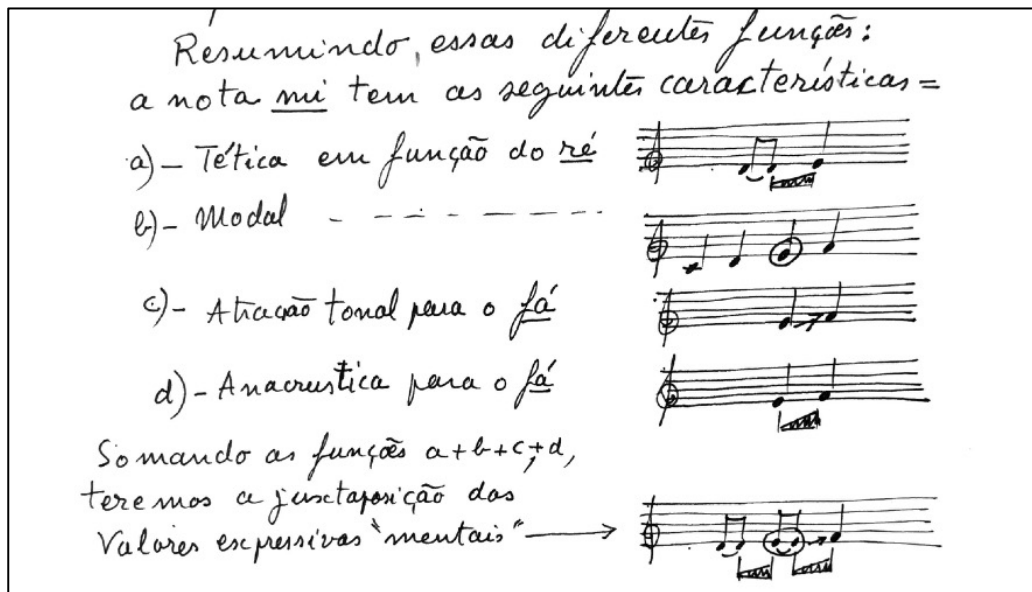 Resumindo, essas diferentes funções:
a nota mi tem as seguintes características=
a) - Tética em função do ré
b) - Modal - - - - - - -
c) - Atração tonal para o fá
d) - Anacrustica para o fá
Somando as funções a+b+c+d,
teremos a justaposição dos
Valores expressivos "mentais" →